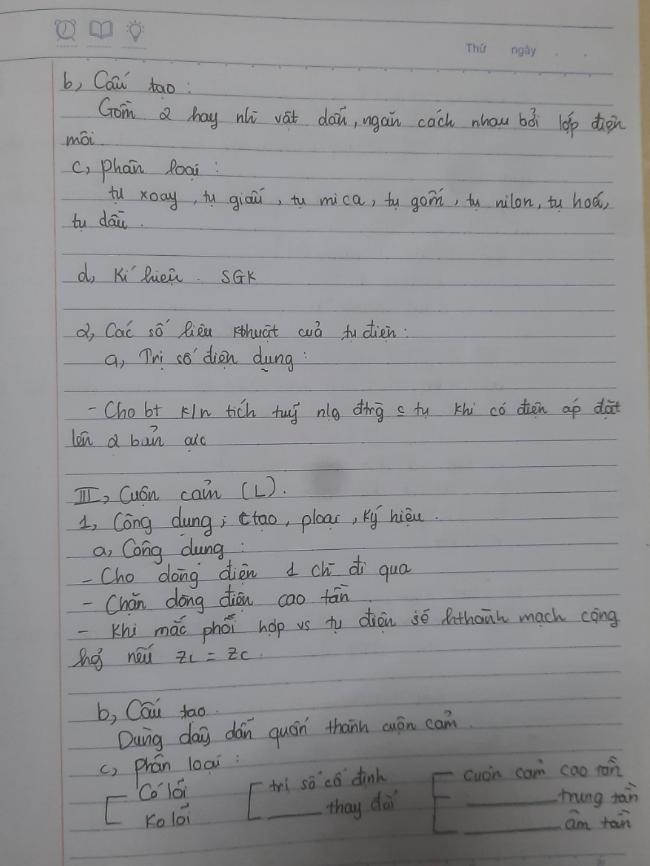 Thứ ngày . .
b, Cấu tạo :
Gồm 2 hay nh` vật dẫn, ngăn cách nhau bởi lớp điện
môi.
c, Phân loại :
tụ xoay, tụ giấy, tụ mica, tụ gốm, tụ nilon, tụ hoá,
tụ dầu.
d, Kí hiệu . SGK
2, Các số liệu kthuật của tụ điện :
a, Trị số điện dung :
- Cho bt k/n tích tuỹ nlg đtrg c tụ khi có điện áp đặt
lên 2 bản cực
III, Cuộn cảm (L).
1, Công dụng, ctạo, ploại, ký hiệu.
a, Công dụng :
- Cho dòng điện 1 chì đi qua
- Chặn dòng điện cao tần
- Khi mắc phối hợp vs tụ điện sẽ hthành mạch cộng
hg nếu ZL = ZC.
b, Cấu tạo.
Dùng dây dẫn quấn thành cuộn cảm.
c, Phân loại :
[ Có lõi [ trị số cố định [ cuộn cảm cao tần
Ko lõi ______ thay đổi ______ trung tần
______ âm tần